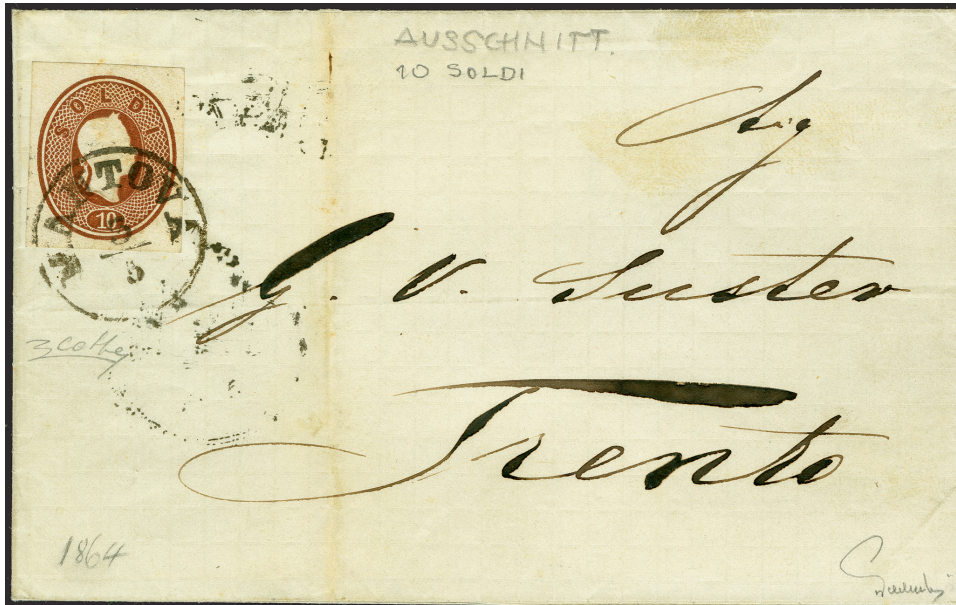 AUSSCHNITT.
10 SOLDI
SOLDI
10
MANTOVA
3/5
Sig
G. V. Suster
Trento
1864